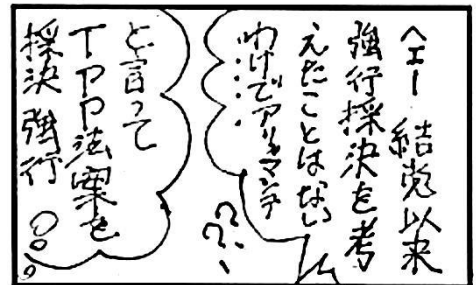 ヘエー 結党以来
強行採決を考
えたことはない
わけでアリマシテ
・・・・・
??、
と言って
TPP法案を
採決 強行
○○。